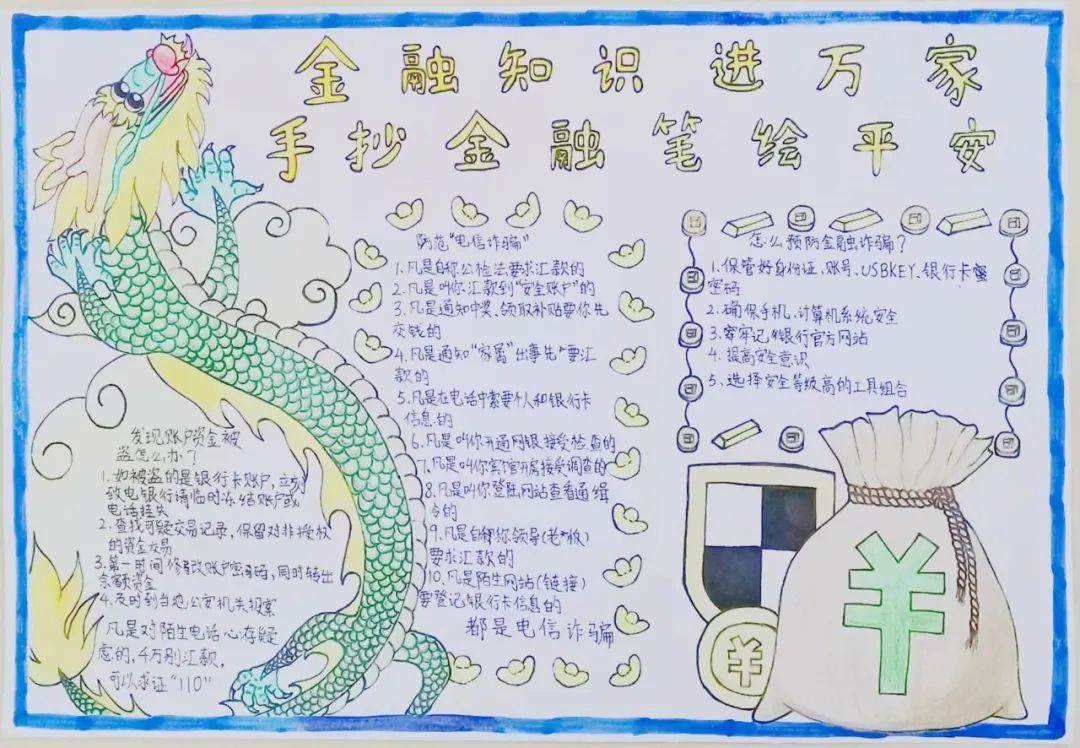 金融知识进万家
手抄金融笔绘平安
防范"电信诈骗"
1.凡是自称公检法要求汇款的
2.凡是叫你汇款到"安全账户"的
3.凡是通知中奖、领取补贴要你先
交钱的
4.凡是通知"家属"出事先要汇
款的
5.凡是在电话中索要个人和银行卡
信息的
6.凡是叫你开通网银接受检查的
7.凡是叫你宾馆开房接受调查的
8.凡是叫你登陆网站查看通缉
令的
9.凡是自称你领导(老板)
要求汇款的
10.凡是陌生网站(链接)
要登记银行卡信息的
都是电信诈骗
怎么预防金融诈骗?
1.保管好身份证、账号、USBKEY、银行卡密
密码
2.确保手机、计算机系统安全
3.牢牢记银行官方网站
4.提高安全意识
5.选择安全等级高的工具组合
发现账户资金被
盗怎么办?
1.如被盗的是银行卡账户,立刻
致电银行请临时冻结账户或
电话挂失
2.查找可疑交易记录,保留对非授权
的资金交易
3.第一时间修改账户密码,同时转出
余额资金
4.及时到当地公安机关报案
凡是对陌生电话心存疑
虑的,千万别汇款,
可以求证"110"
¥
¥